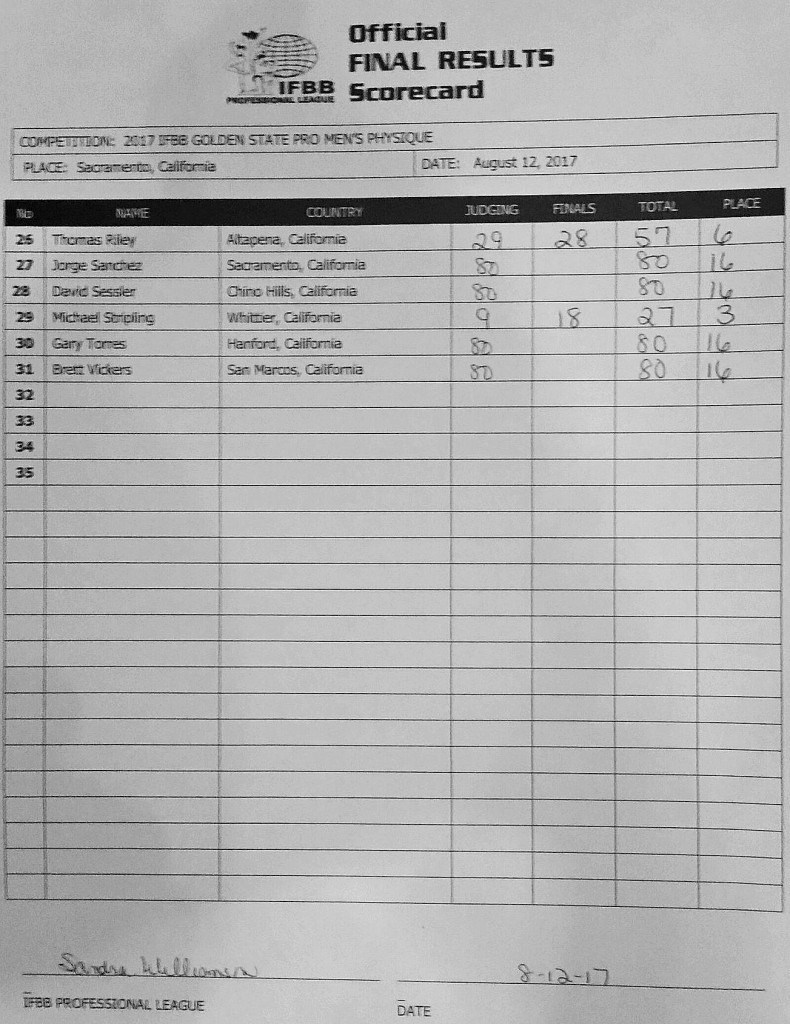 Official
FINAL RESULTS
Scorecard
IFBB
PROFESSIONAL LEAGUE
COMPETITION: 2017 IFBB GOLDEN STATE PRO MEN'S PHYSIQUE
PLACE: Sacramento, California DATE: August 12, 2017
No NAME COUNTRY JUDGING FINALS TOTAL PLACE
26 Thomas Riley Altapena, California 29 28 57 6
27 Jorge Sanchez Sacramento, California 80 80 16
28 David Sessler Chino Hills, California 80 80 16
29 Michael Stripling Whittier, California 9 18 27 3
30 Gary Torres Hanford, California 80 80 16
31 Brett Vickers San Marcos, California 80 80 16
32
33
34
35
Sandra Williamson 8-12-17
IFBB PROFESSIONAL LEAGUE DATE